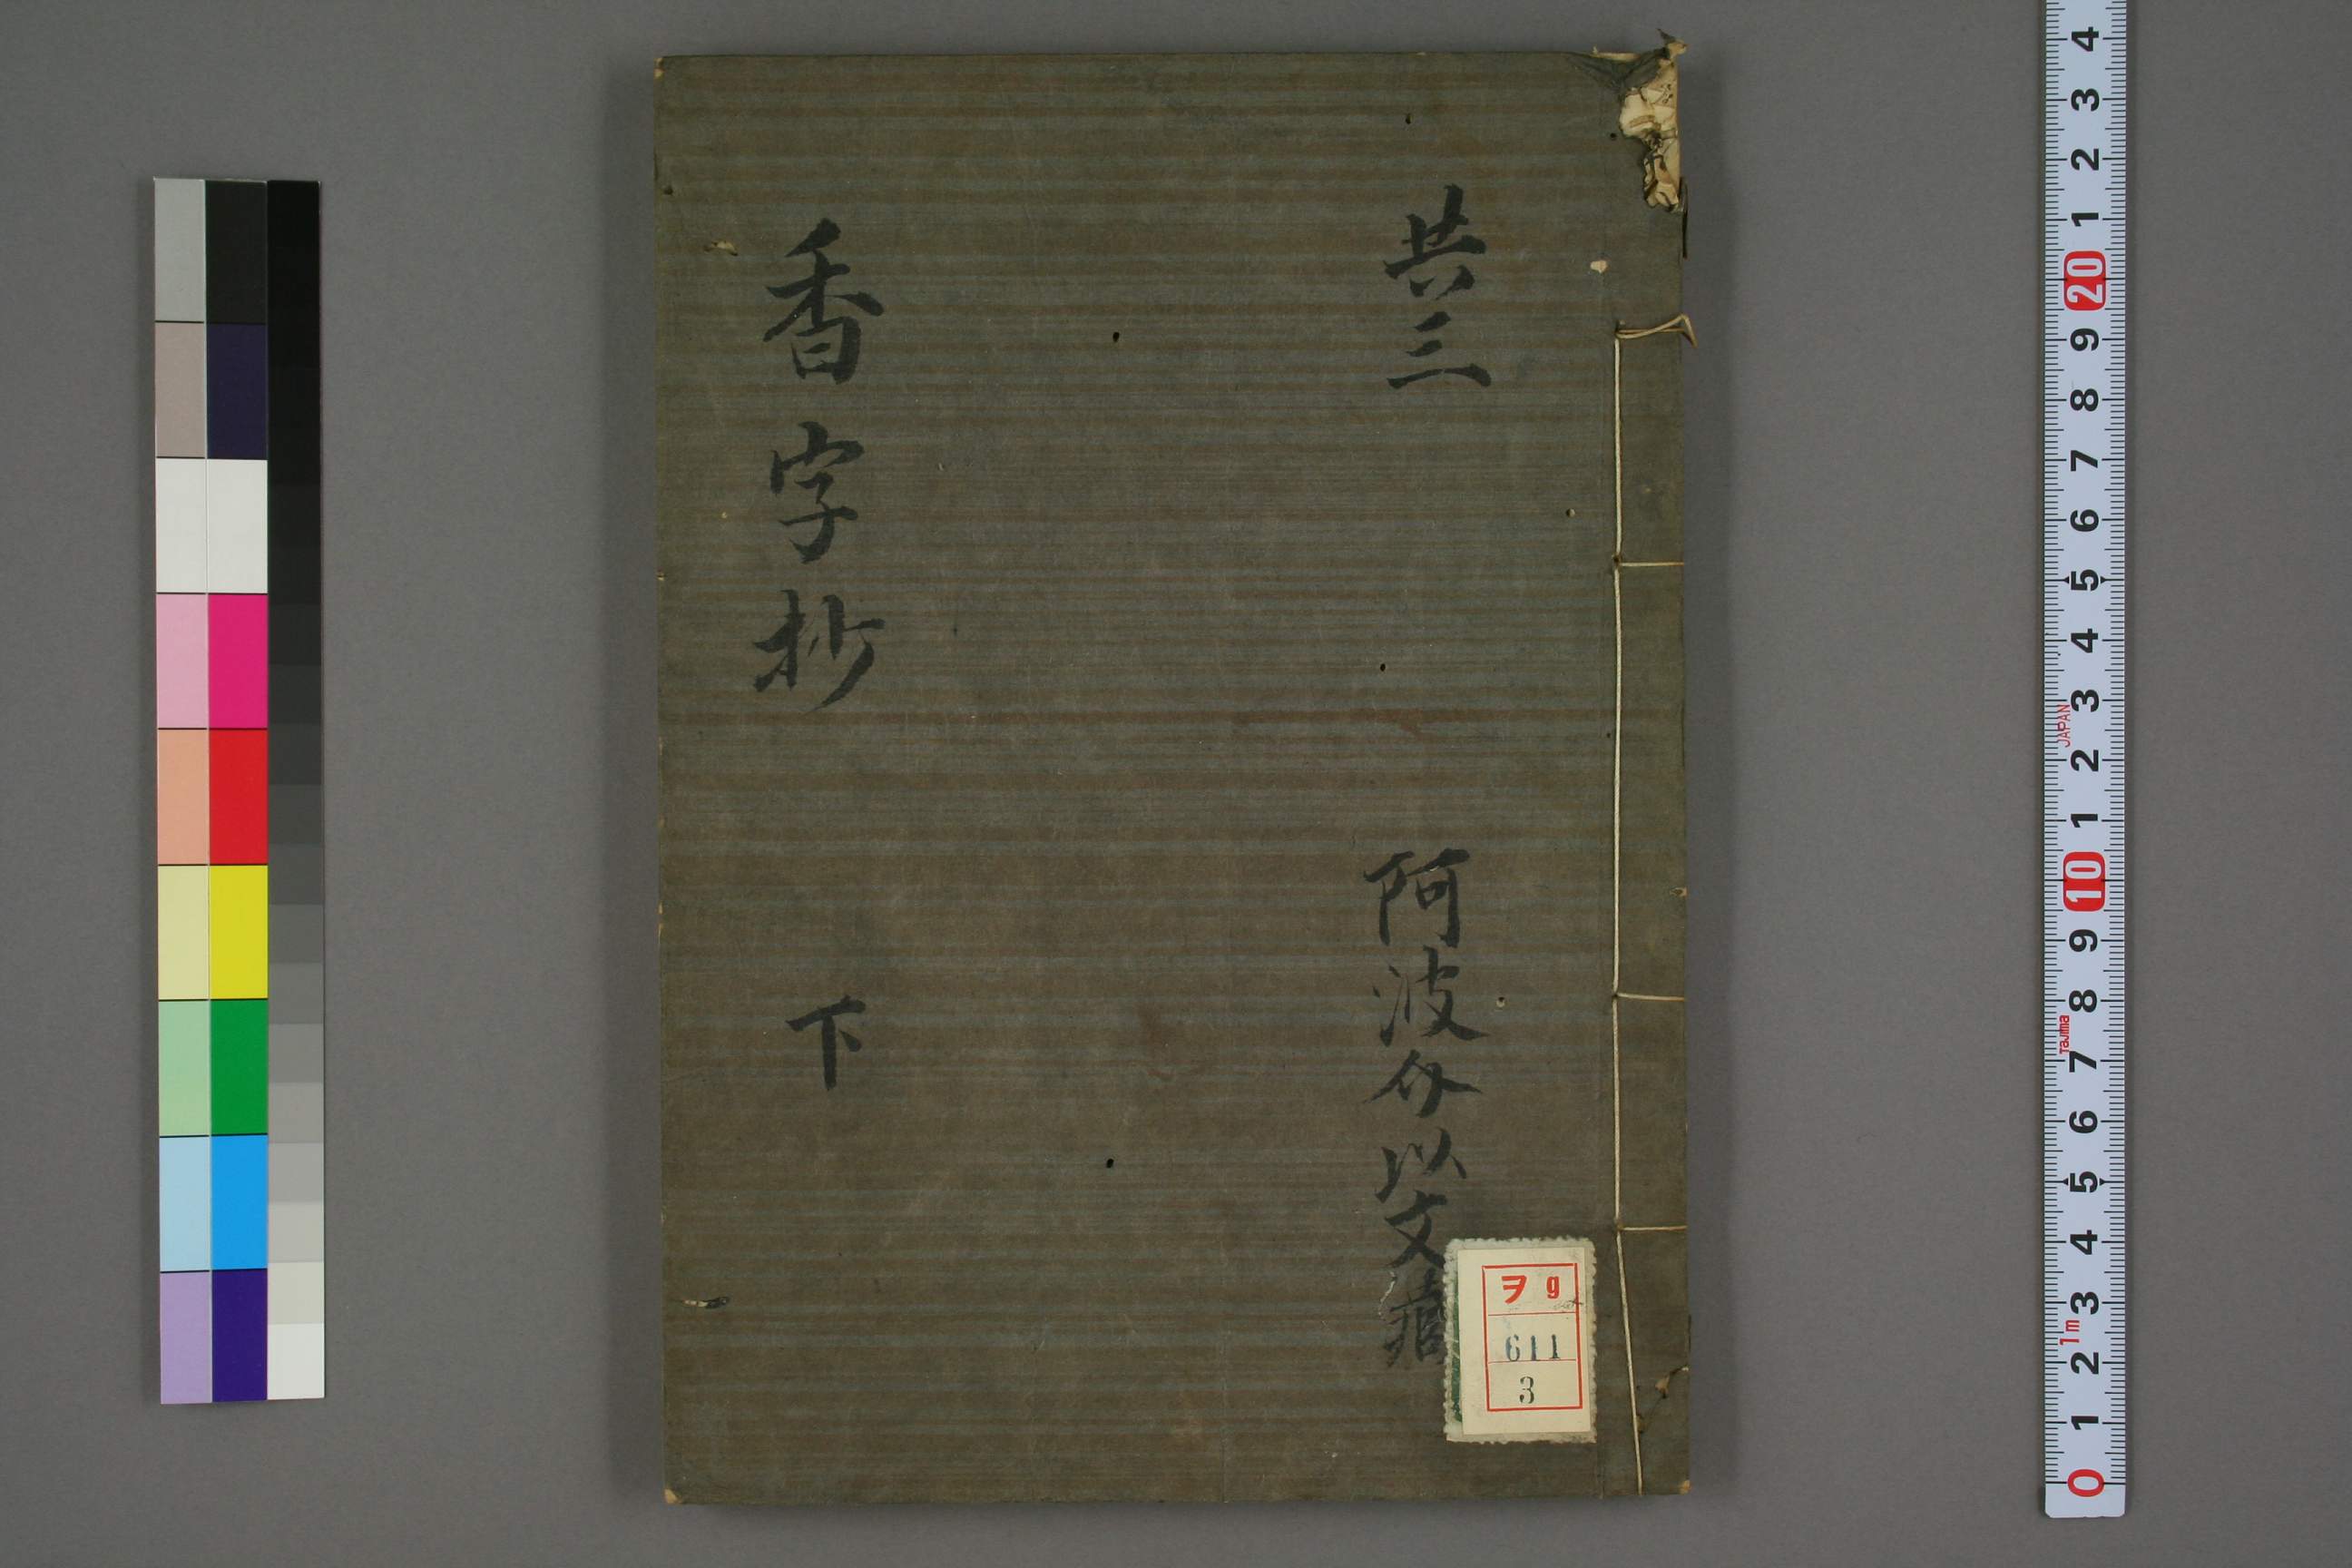 共三
阿波介以文藏
香字抄
下
ヲ 9
611
3
4
3
2
1
20
9
8
7
6
5
4
3
2
1
10
9
8
7
6
5
4
3
2
1
0
JAPAN
Tajima
1m